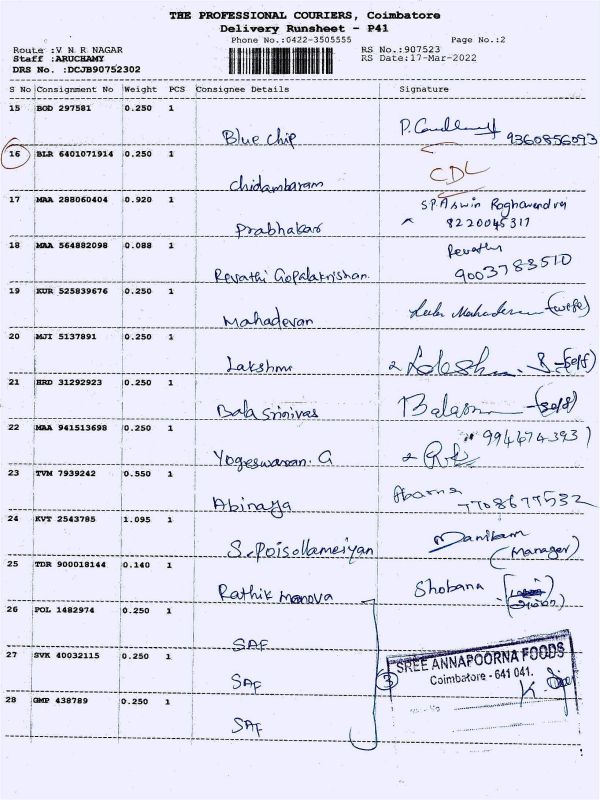 THE PROFESSIONAL COURIERS, Coimbatore
Delivery Runsheet - P41
Phone No.:0422-3505555
Page No.:2
Route :V N R NAGAR
RS No.:907523
Staff :ARUCHAMY
RS Date:17-Mar-2022
DRS No. :DCJB90752302
S No Consignment No Weight PCS Consignee Details Signature
15 BOD 297581 0.250 1
Blue chip 9360856093
16 BLR 6401071914 0.250 1
CDL
chidambaram
17 MAA 288060404 0.920 1
S.P.Aswin Raghavendra
Prabhakar 8220045317
18 MAA 564882098 0.088 1
Revathi
Revathi Gopalakrishnan 9003783510
19 KUR 525839676 0.250 1
Mahadevan (wife)
20 MJI 5137891 0.250 1
Lakshmi (self)
21 HRD 31292923 0.250 1
Bala srinivas (self)
22 MAA 941513698 0.250 1
Yogeswaran. G
23 TVM 7939242 0.550 1
Abinaya 7708677532
24 KVT 2543785 1.095 1
Manikam
S. Poisollameiyan (Manager)
25 TDR 900018144 0.140 1
Shobana
Rathik Manova
26 POL 1482974 0.250 1
SAF
27 SVK 40032115 0.250 1
SREE ANNAPOORNA FOODS
Coimbatore - 641 041.
SAF 3
28 GMP 438789 0.250 1
SAF